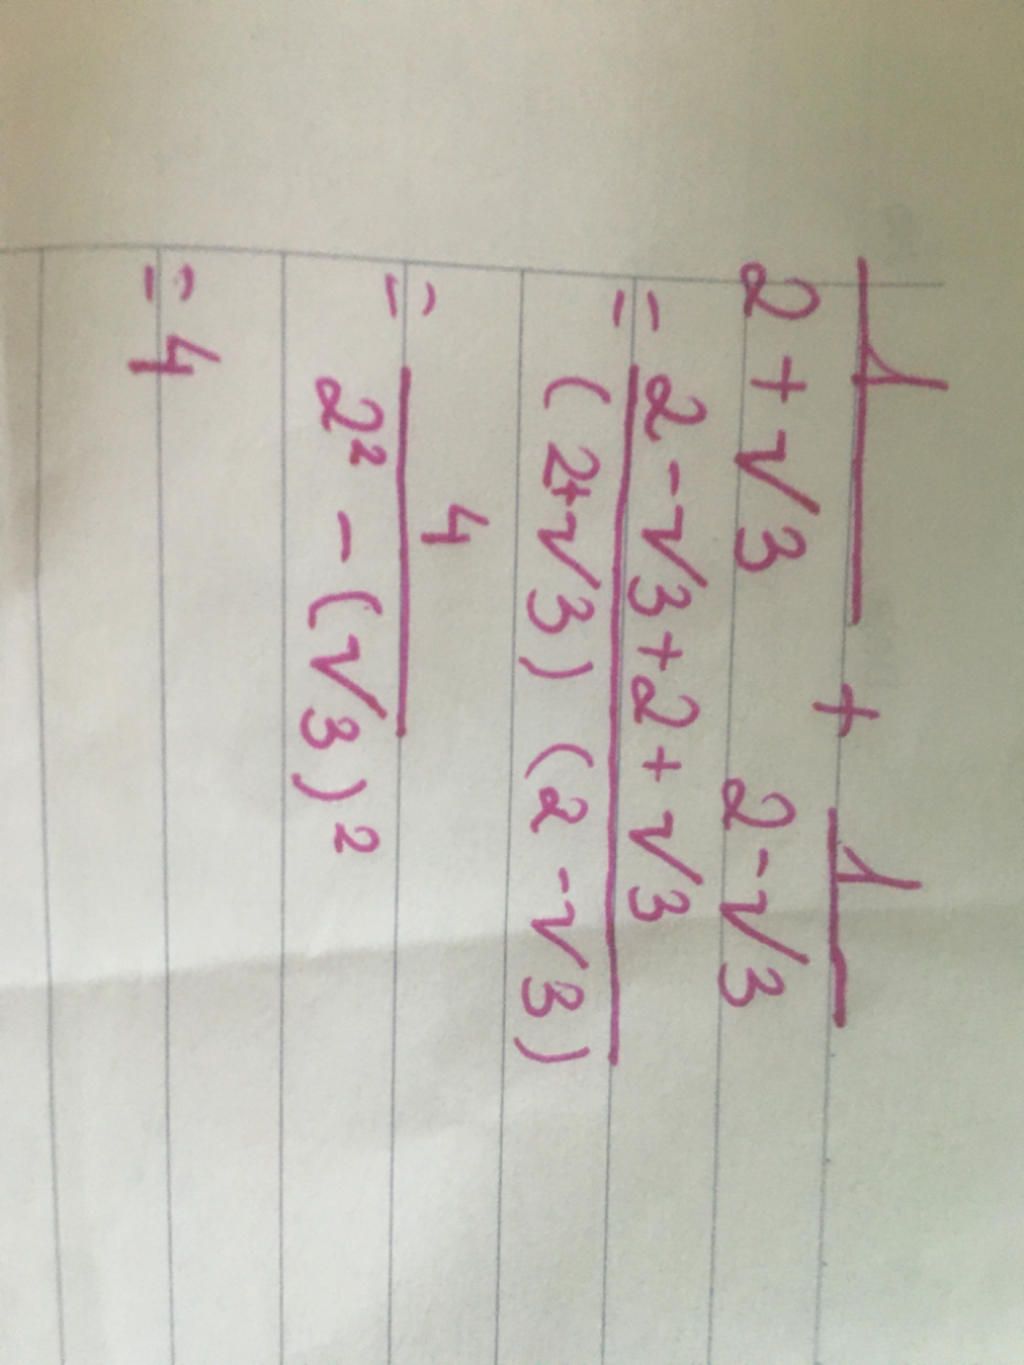 1/(2 + √3) + 1/(2 - √3)
= (2 - √3 + 2 + √3)/((2 + √3) (2 - √3))
= 4/(2² - (√3)²)
= 4